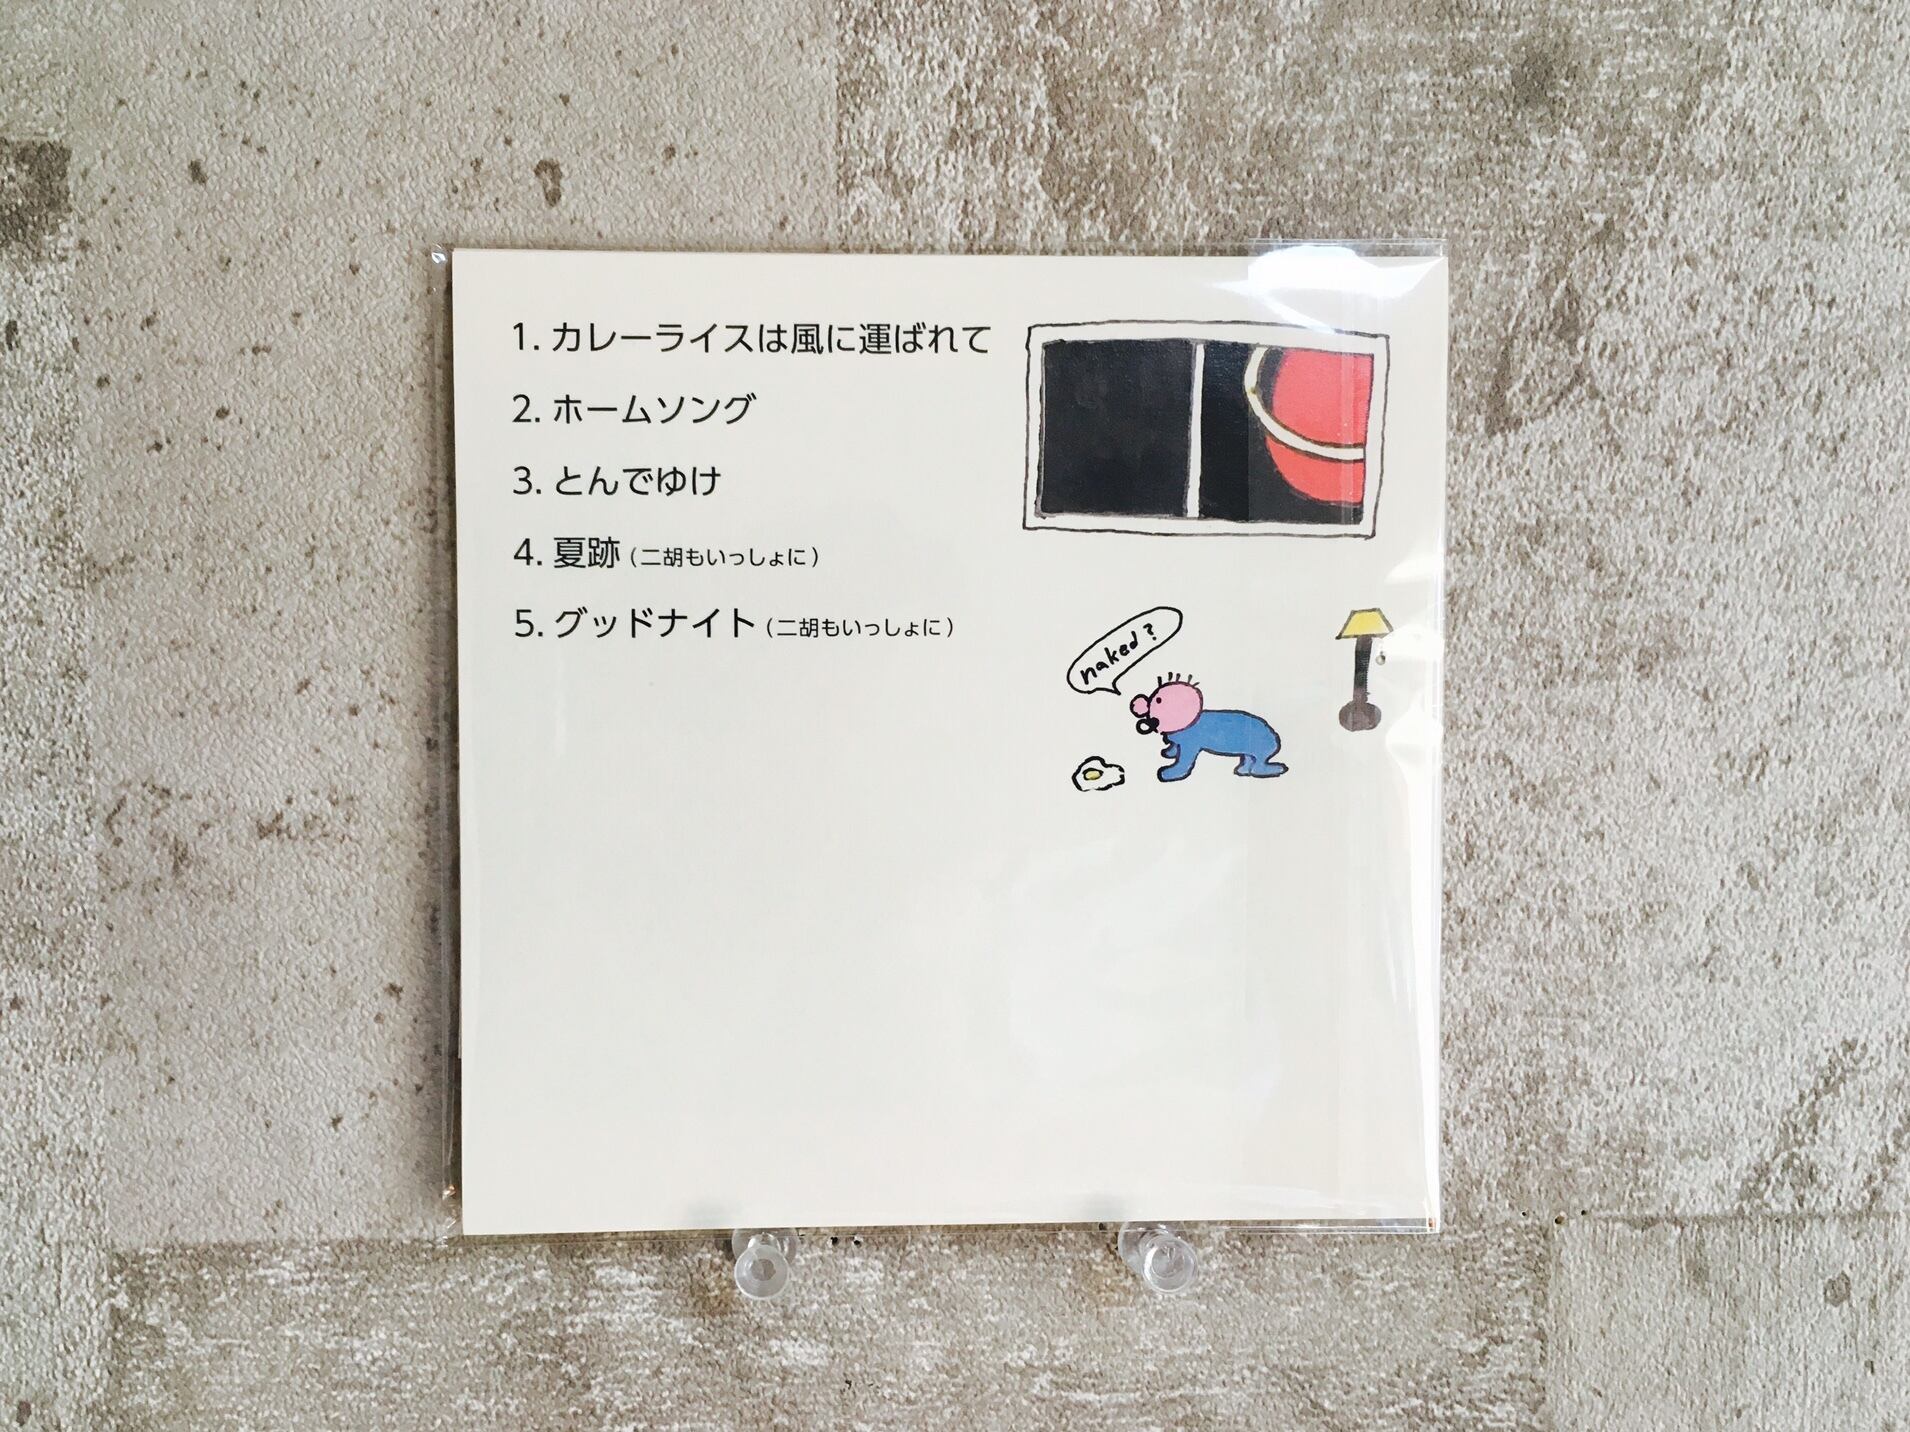 1. カレーライスは風に運ばれて
2. ホームソング
3. とんでゆけ
4. 夏跡 (二胡もいっしょに)
5. グッドナイト (二胡もいっしょに)
naked?